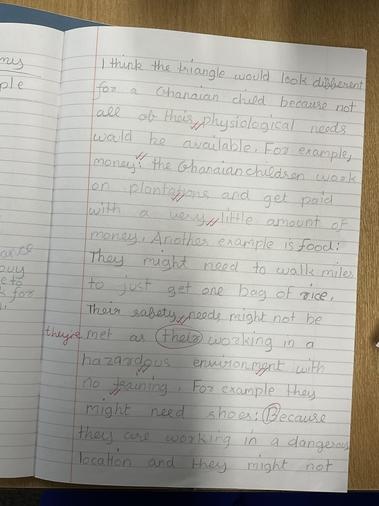 my
ple
I think the triangle would look different
for a Ghanaian child because not
all of their physiological needs
would be available. For example,
money: the Ghanaian children work
on plantations and get paid
with a very little amount of
money. Another example is food:
They might need to walk miles
to just get one bag of rice.
Their safety needs might not be
they're met as their working in a
hazardous environment with
no training. For example they
might need shoes: Because
they are working in a dangerous
location and they might not